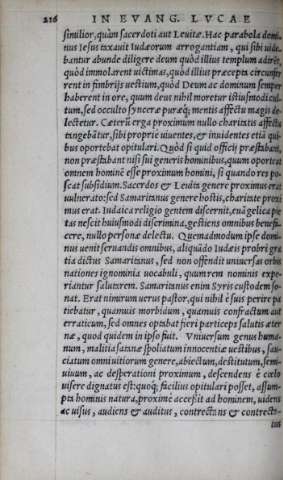 216 IN EVANG. LVCAE
similior, quàm sacerdoti aut Leuitæ. Hac parabola domi-
nus Iesus taxauit Iudæorum arrogantiam, qui sibi uide-
bantur abunde diligere deum quòd illius templum adirēt,
quòd immolarent uictimas, quòd illius præcepta circumfer
rent in fimbrijs uestium, quòd Deum ac dominum semper
haberent in ore, quum deus nihil moretur istiusmodi cul-
tum, sed occulto synceræ puræq; mentis affectu magis de-
lectetur. Cæterū erga proximum nullo charitatis affectu
tāgebātur, sibi proprie uiuentes, & inuidentes etiā qui-
bus oportebat opitulari. Quòd si quid officij præstabant,
non præstabant nisi sui generis hominibus, quum oporteat
omnem hominē esse proximum homini, si quando res po-
scat subsidium. Sacerdos & Leuita genere proximus erat
uulnerato: sed Samaritanus genere hostis, charitate proxi
mus erat. Iudaica religio gentem discernit, euāgelica pie
tas nescit huiusmodi discrimina, gestiens omnibus benefa-
cere, nullo personæ delectu. Quemadmodum ipse domi-
nus uenit seruandis omnibus, aliquādo Iudæis probri gra
tia dictus Samaritanus, sed non offendit uniuersas orbis
nationes ignominia uocabuli, quum rem nominis expe-
riantur salutarem. Samaritanus enim Syris custodem so-
nat. Erat nimirum uerus pastor, qui nihil è suis perire pa
tiebatur, quamuis morbidum, quamuis confractum aut
erraticum, sed omnes optabat fieri participes salutis æter
næ, quod quidem in ipso fuit. Vniuersum genus huma-
num, malitia satanæ spoliatum innocentiæ uestibus, sau-
ciatum omni uitiorum genere, abiectum, destitutum, semi-
uiuum, ac desperationi proximum, descendens è cœlo
uisere dignatus est: quoq; facilius opitulari posset, assum-
pta hominis natura, proximè accessit ad hominem, uidens
ac uisus, audiens & auditus, contrectans & contrecta-